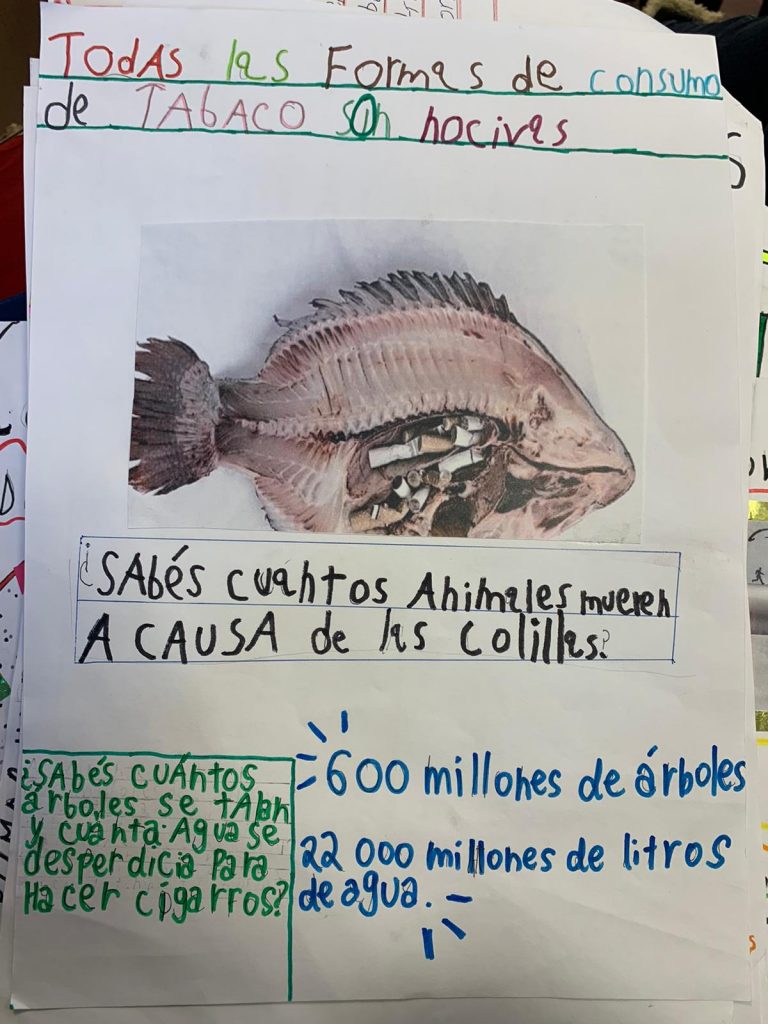 TODAS las Formas de consumo
de TAbACO son nocivas
¿SAbés cuantos Animales mueren
A CAUSA de las colillas?
¿SAbés cuÁntos
árboles se tAlan
y cuánta Agua se
desperdicia para
Hacer cigarros?
600 millones de árboles
22 000 millones de litros
de agua.